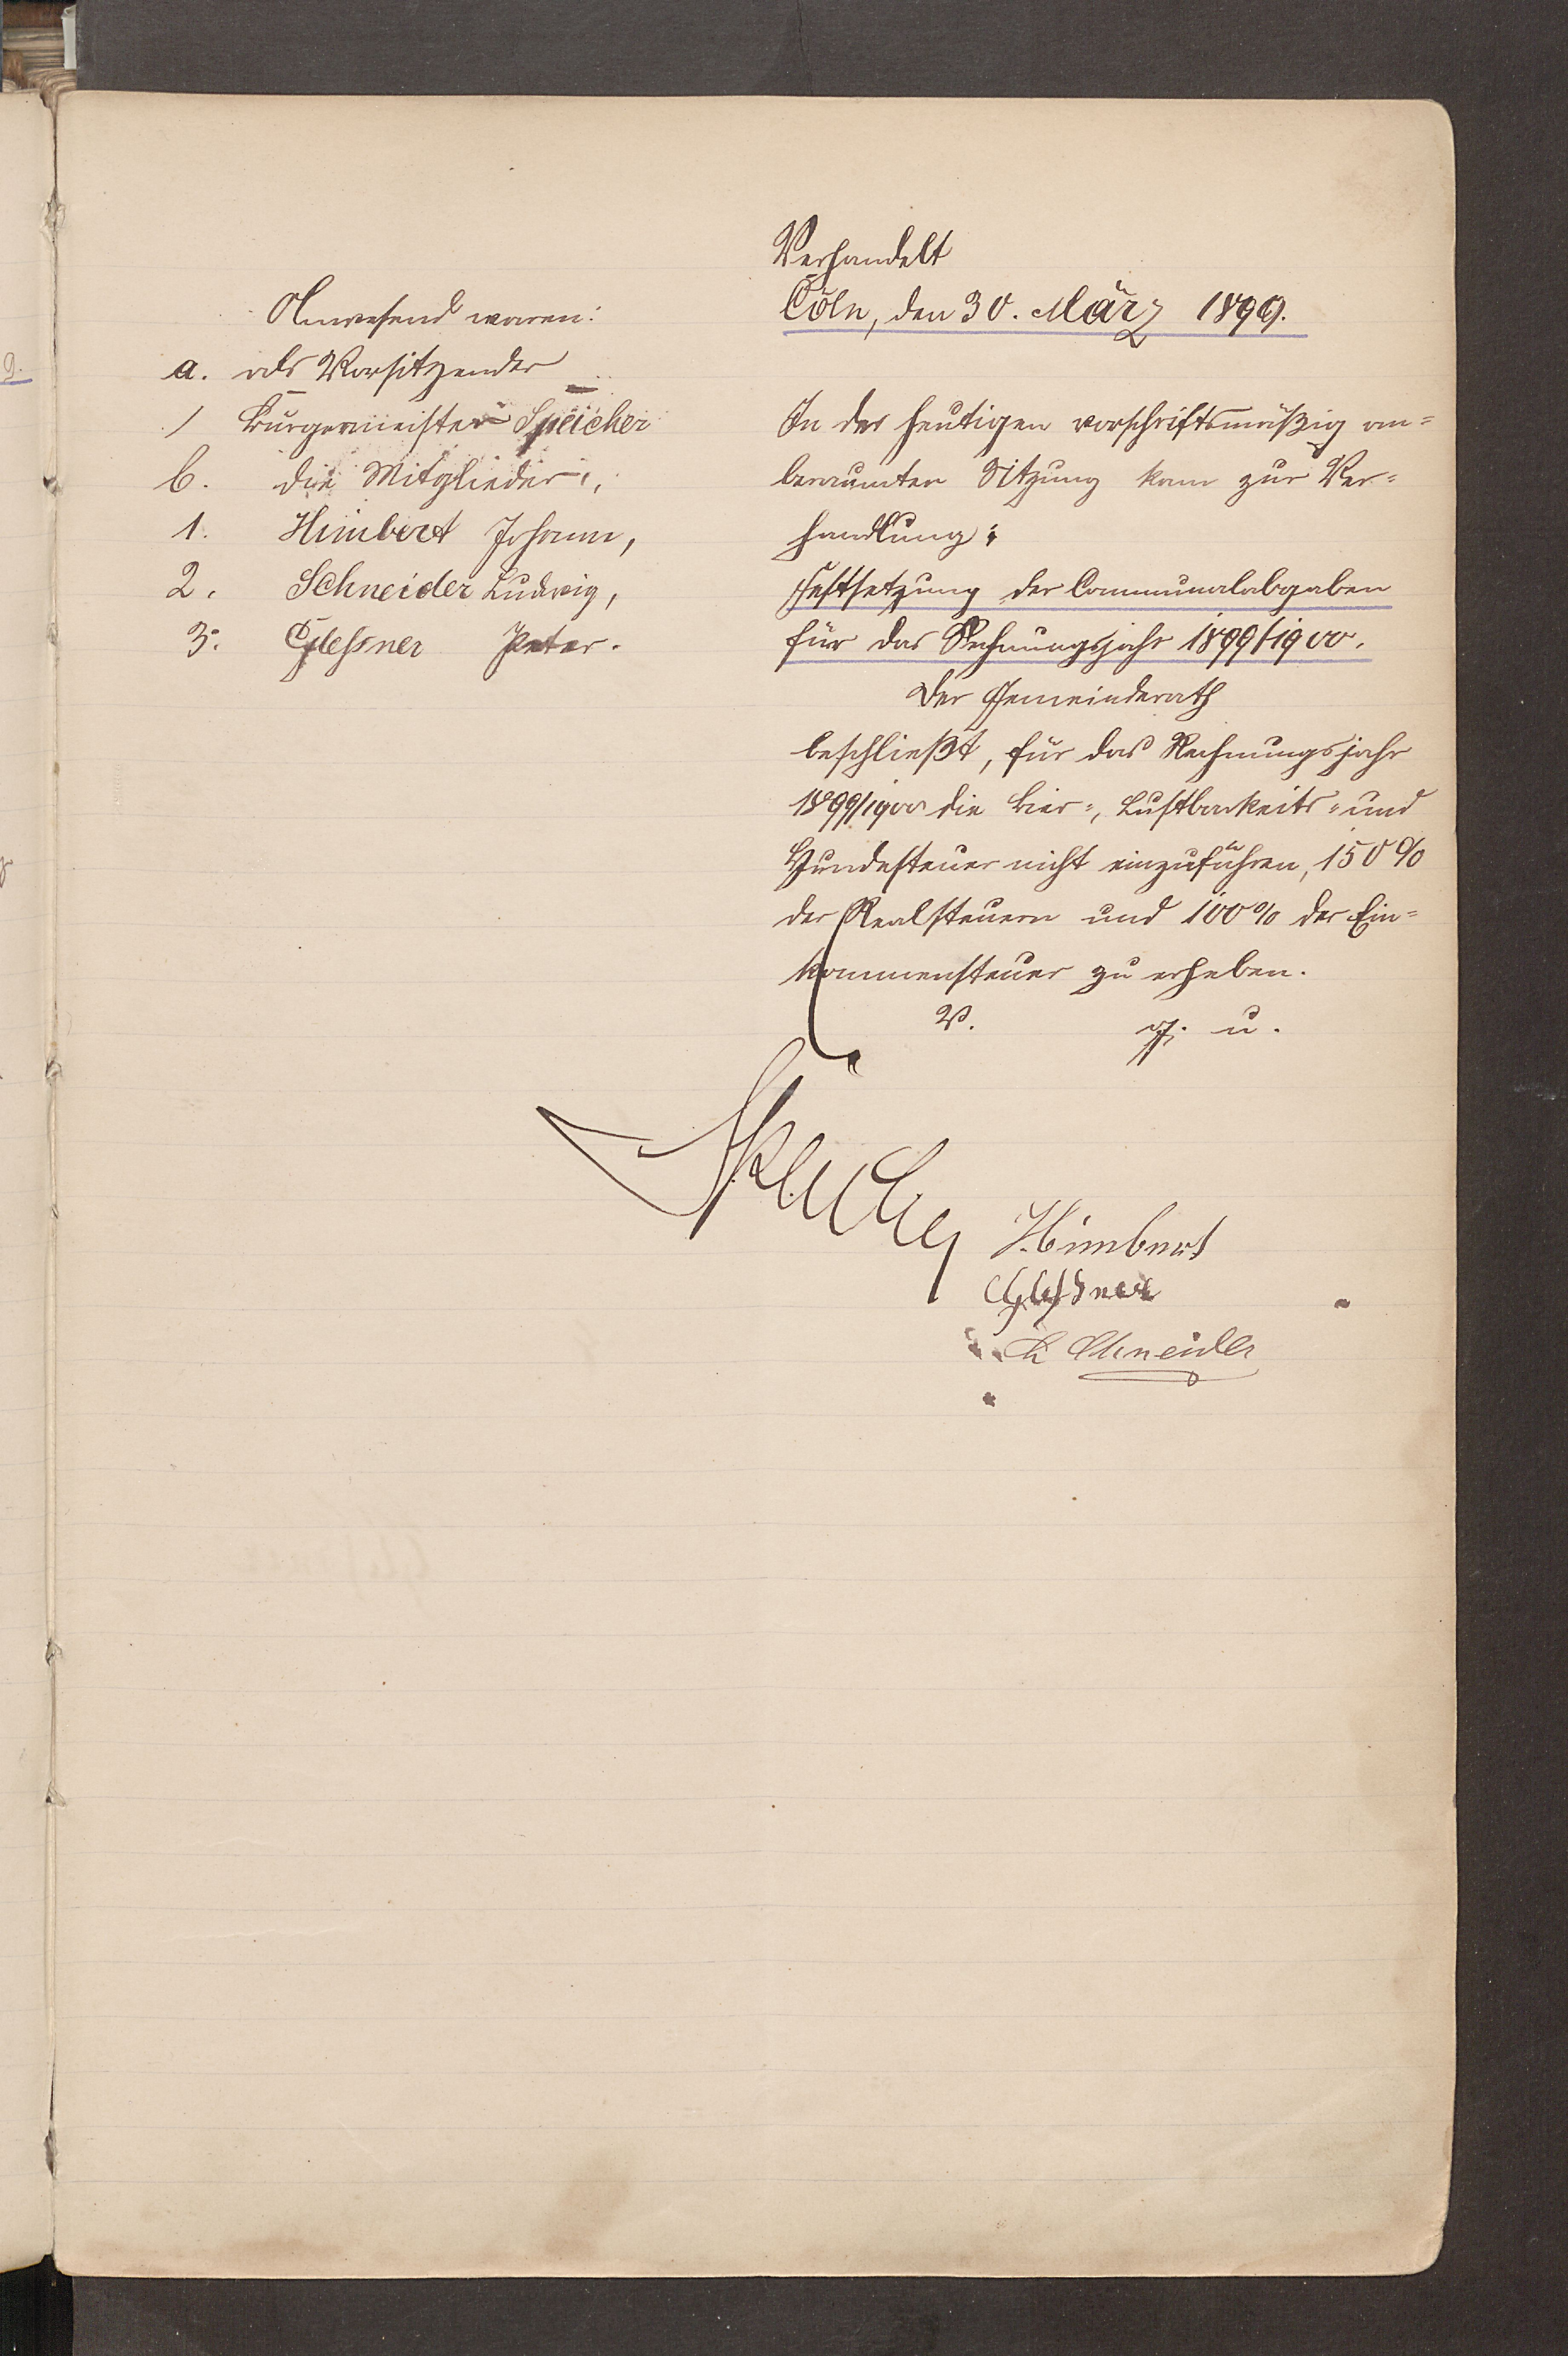 Verhandelt
Cöln, den 30. März 1899.
Anwesend waren:
a. als Vorsitzender
1 Bürgermeister Speicher
b. die Mitglieder:
1. Himbert Johann,
2. Schneider Ludwig,
3. Gleßner Peter.
In der heutigen vorschriftsmäßig an=
beraumten Sitzung kam zur Ver=
handlung:
Festsetzung der Communalabgaben
für das Rechnungsjahr 1899/1900.
Der Gemeinderath
beschließt, für das Rechnungsjahr
1899/1900 die Bier=, Lustbarkeits= und
Hundesteuer nicht einzuführen, 150 %
der Realsteuern und 100 % der Ein=
kommensteuer zu erheben.
V. g. u.
Speicher
J. Himbert
Gleßner
L Schneider
9.